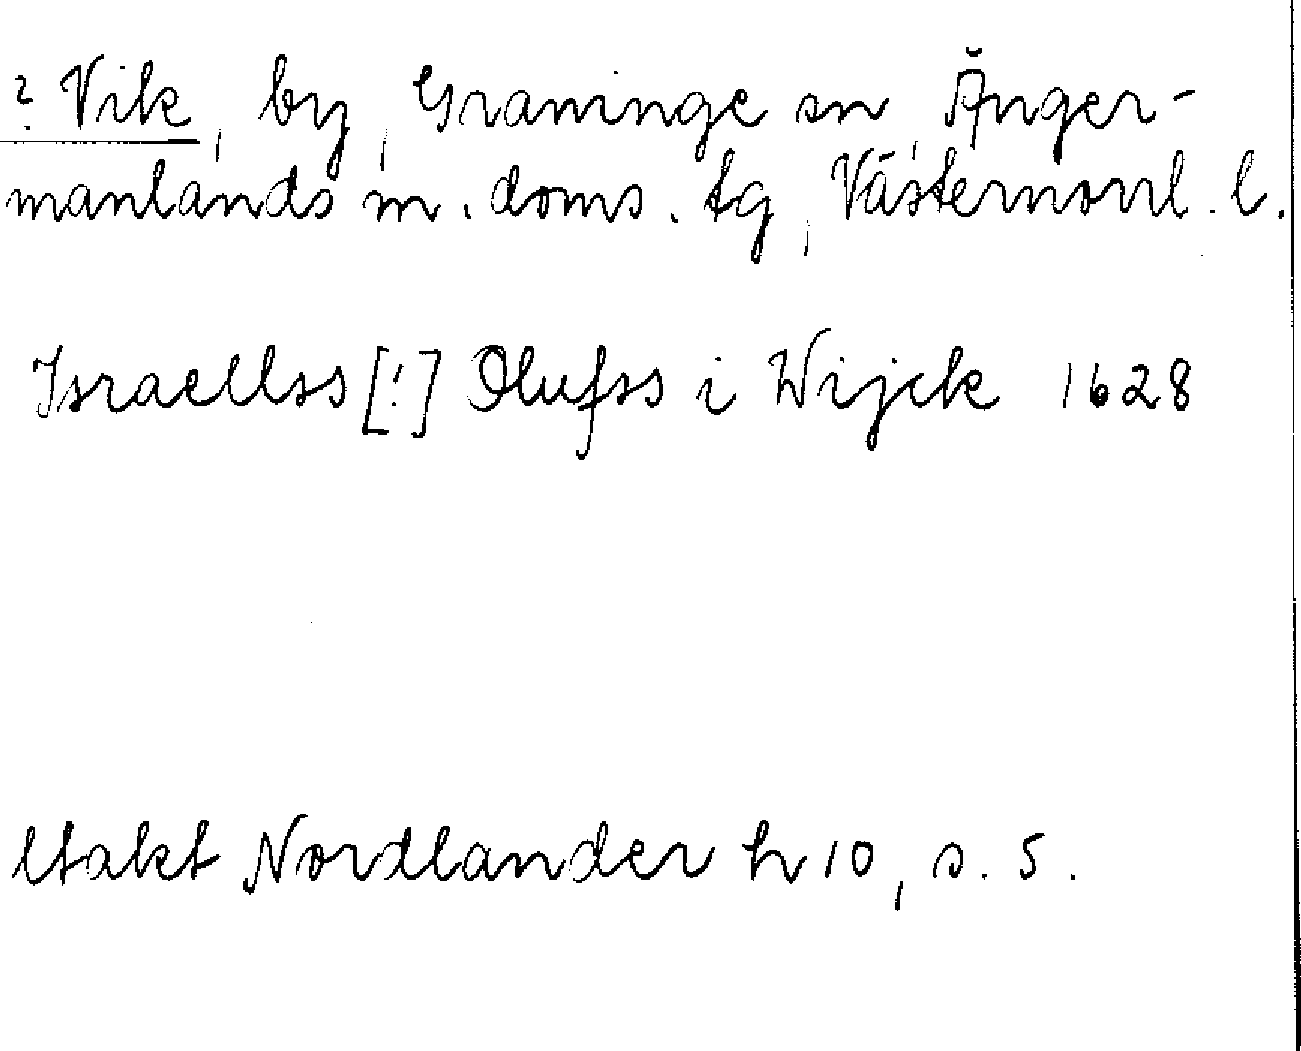 ? Vik, by, Graninge sn, Ånger-
manlands m. doms. tg, Västernorrl. l.
Israellss [!] Olufss i Wijck 1628
Utakt Nordlander h 10, s. 5.